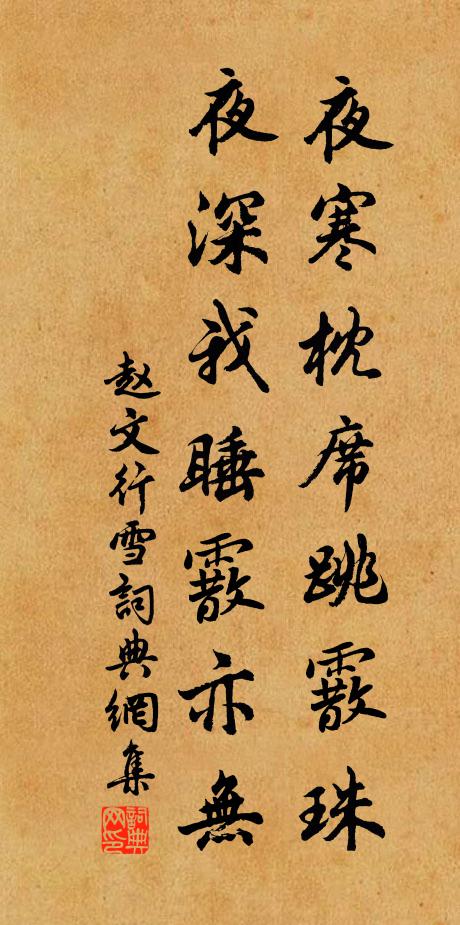 夜寒枕席跳霰珠
夜深我睡霰亦無
赵文行雪詞典網集
詞典网印